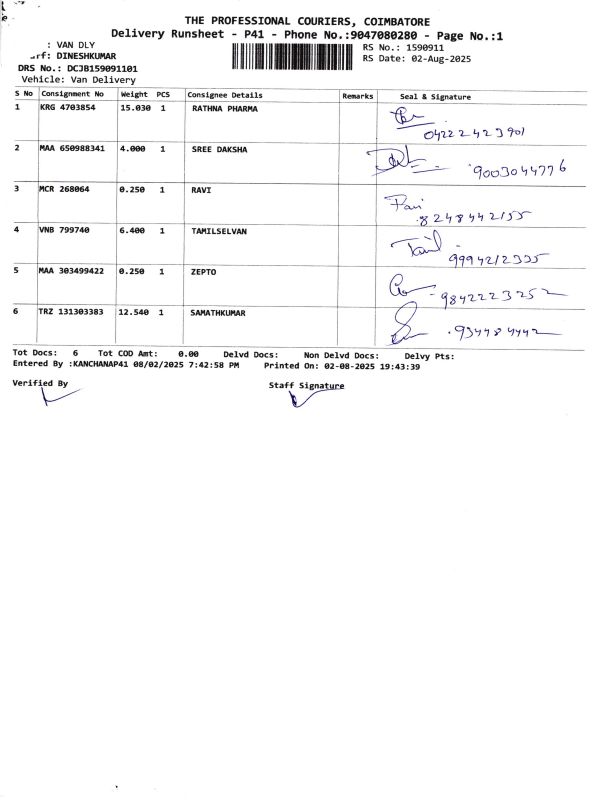 THE PROFESSIONAL COURIERS, COIMBATORE
Delivery Runsheet - P41 - Phone No.:9047080280 - Page No.:1
: VAN DLY
RS No.: 1590911
rf: DINESHKUMAR
RS Date: 02-Aug-2025
DRS No.: DCJB159091101
Vehicle: Van Delivery
S No Consignment No Weight PCS Consignee Details Remarks Seal & Signature
1 KRG 4703854 15.030 1 RATHNA PHARMA
04222423901
2 MAA 650988341 4.000 1 SREE DAKSHA
9003044776
3 MCR 268064 0.250 1 RAVI
Ravi
8248442155
4 VNB 799740 6.400 1 TAMILSELVAN
Tamil
9994212335
5 MAA 303499422 0.250 1 ZEPTO
9842223252
6 TRZ 131303383 12.540 1 SAMATHKUMAR
Tot Docs: 6 Tot COD Amt: 0.00 Delvd Docs: Non Delvd Docs: Delvy Pts:
Entered By :KANCHANAP41 08/02/2025 7:42:58 PM Printed On: 02-08-2025 19:43:39
Verified By
Staff Signature